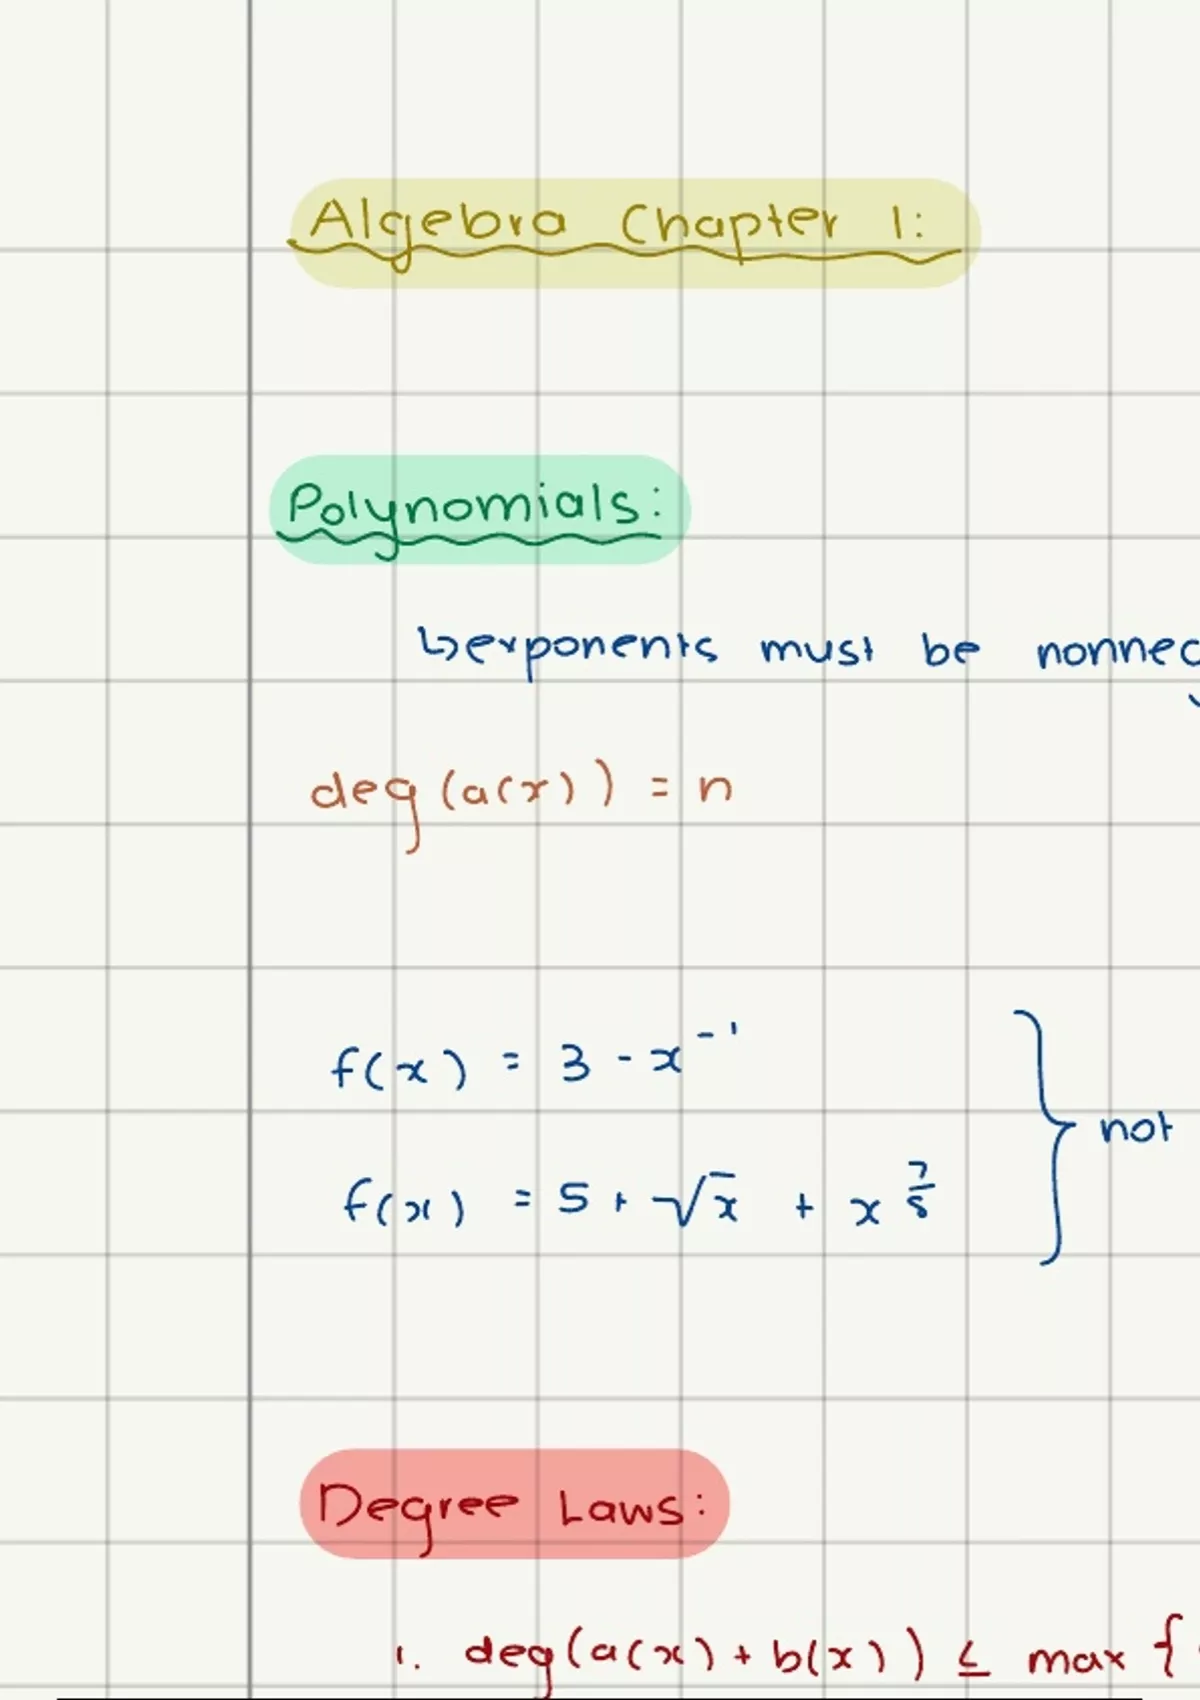 Algebra Chapter 1:
Polynomials:
↳ exponents must be nonneg
deg(a(x)) = n
f(x) = 3 - x⁻¹
f(x) = 5 + √x + x^(7/5) } not
Degree Laws:
1. deg(a(x) + b(x)) ≤ max {